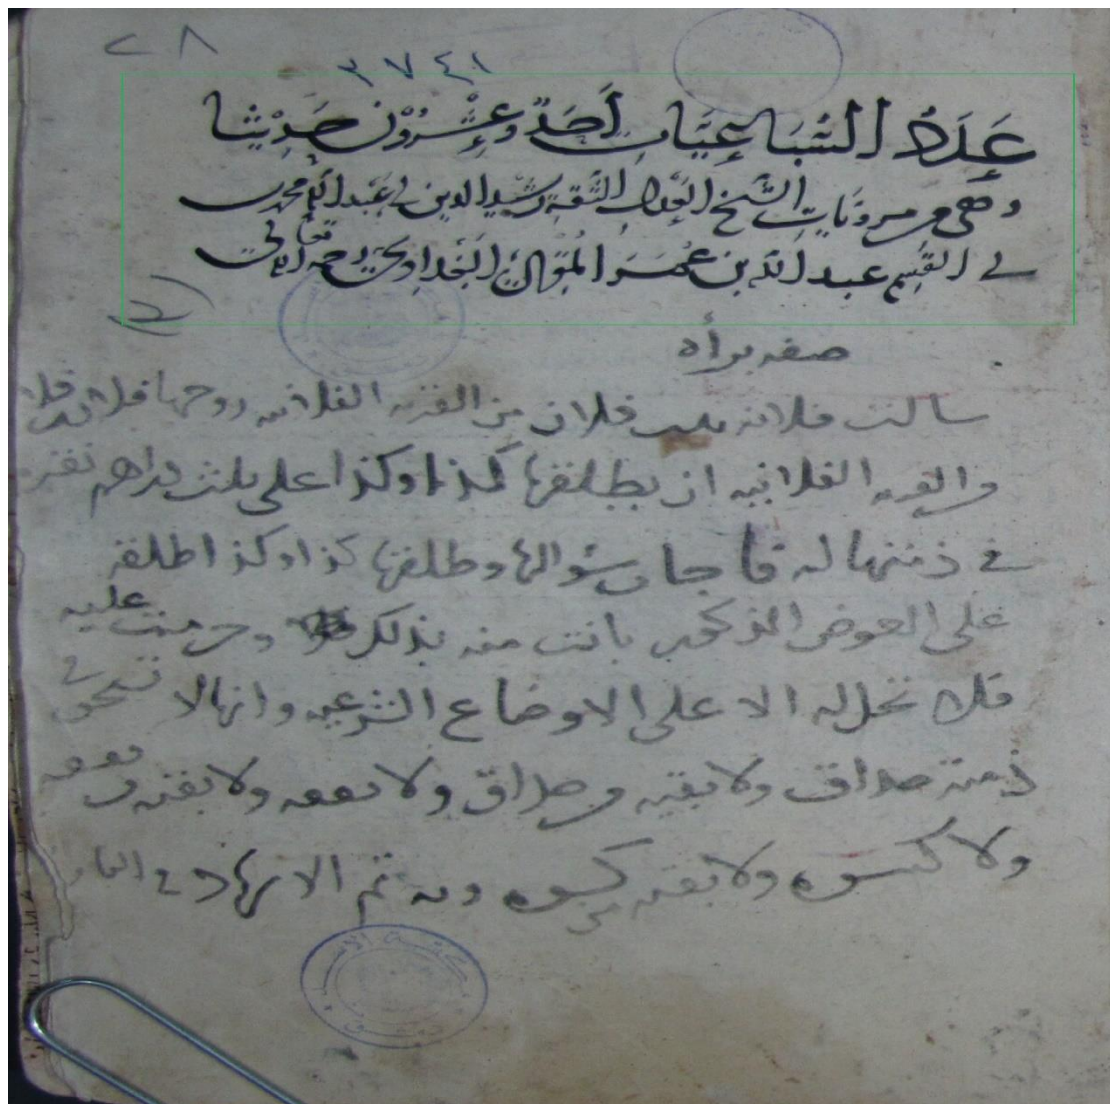 ٢٨
٣٧٤١
عَدَدُ السُّبَاعِيَّاتِ أَحَدٌ وَعِشْرُوْنَ حَدِيْثًا
وهي من مرويات الشيخ العدل الثقة رشيد الدين ابي عبد الله محمد بن
ابي القسم عبد الله بن عمر المقرئ البغدادي رحمه الله تعالى
صفه برأه
سالت فلانه بنت فلان من القريه الفلانيه زوجها فلان بن فلان
من القريه الفلانيه ان يطلقها كذا وكذا على ثلث دراهم نقره
في ذمتها له فاجاب سؤالها وطلقها كذا وكذا طلقه
على العوض المذكور بانت منه بذلك وحرمت عليه
فلا تحل له الا على الاوضاع الشرعيه وانها لا تستحق في
ذمته صداق ولا بقيه من صداق ولا نفقه ولا بقيه من نفقه
ولا كسوه ولا بقيه من كسوه وبه تم الاشهاد في
مكتبة الاسد